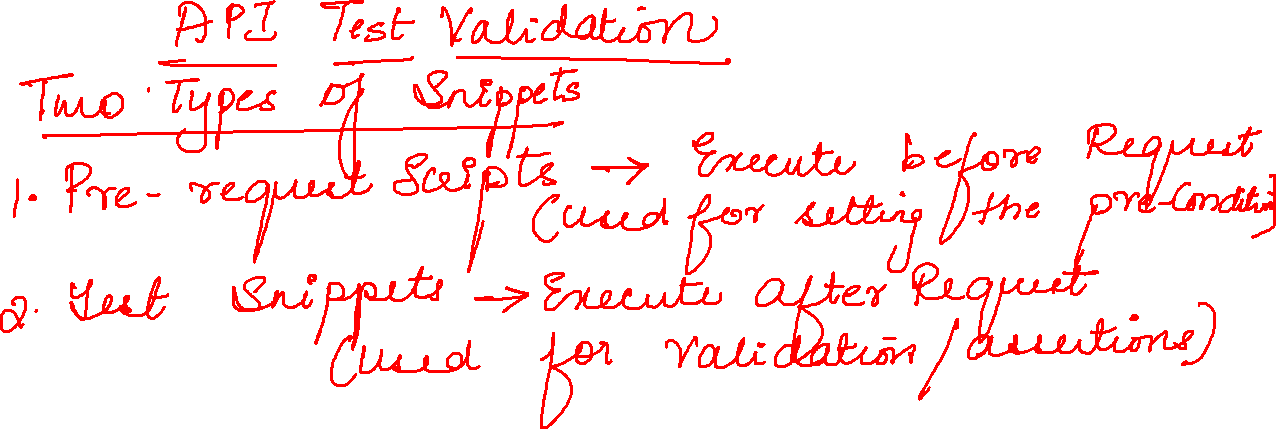 API Test Validation
Two Types of Snippets
1. Pre-request Scripts → Execute before Request
(used for setting the pre-condition)
2. Test Snippets → Execute after Request
(used for validation/assertions)